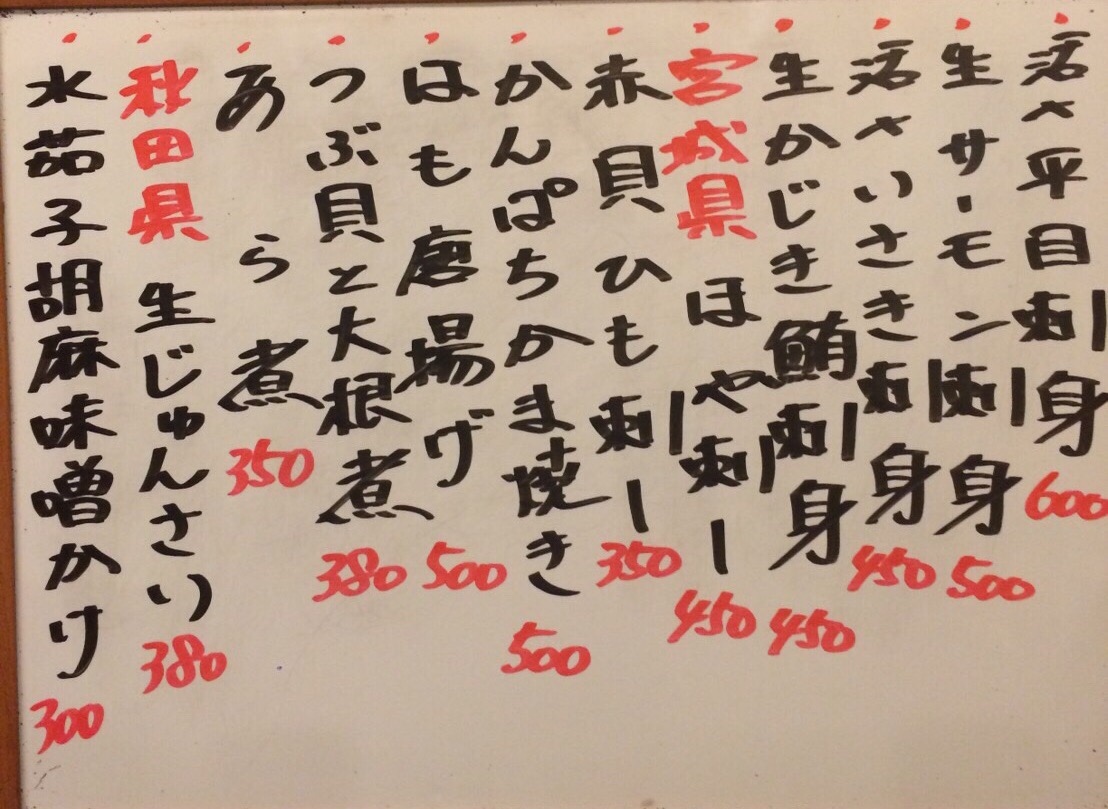 活〆平目刺身 600
生サーモン刺身 500
活〆いさき刺身 450
生かじき鮪刺身 450
宮城県 ほや刺し 450
赤貝ひも刺し 350
かんぱちかま焼き 500
はも唐揚げ 500
つぶ貝と大根煮 380
あら煮 350
秋田県 生じゅんさい 380
水茄子胡麻味噌かけ 300